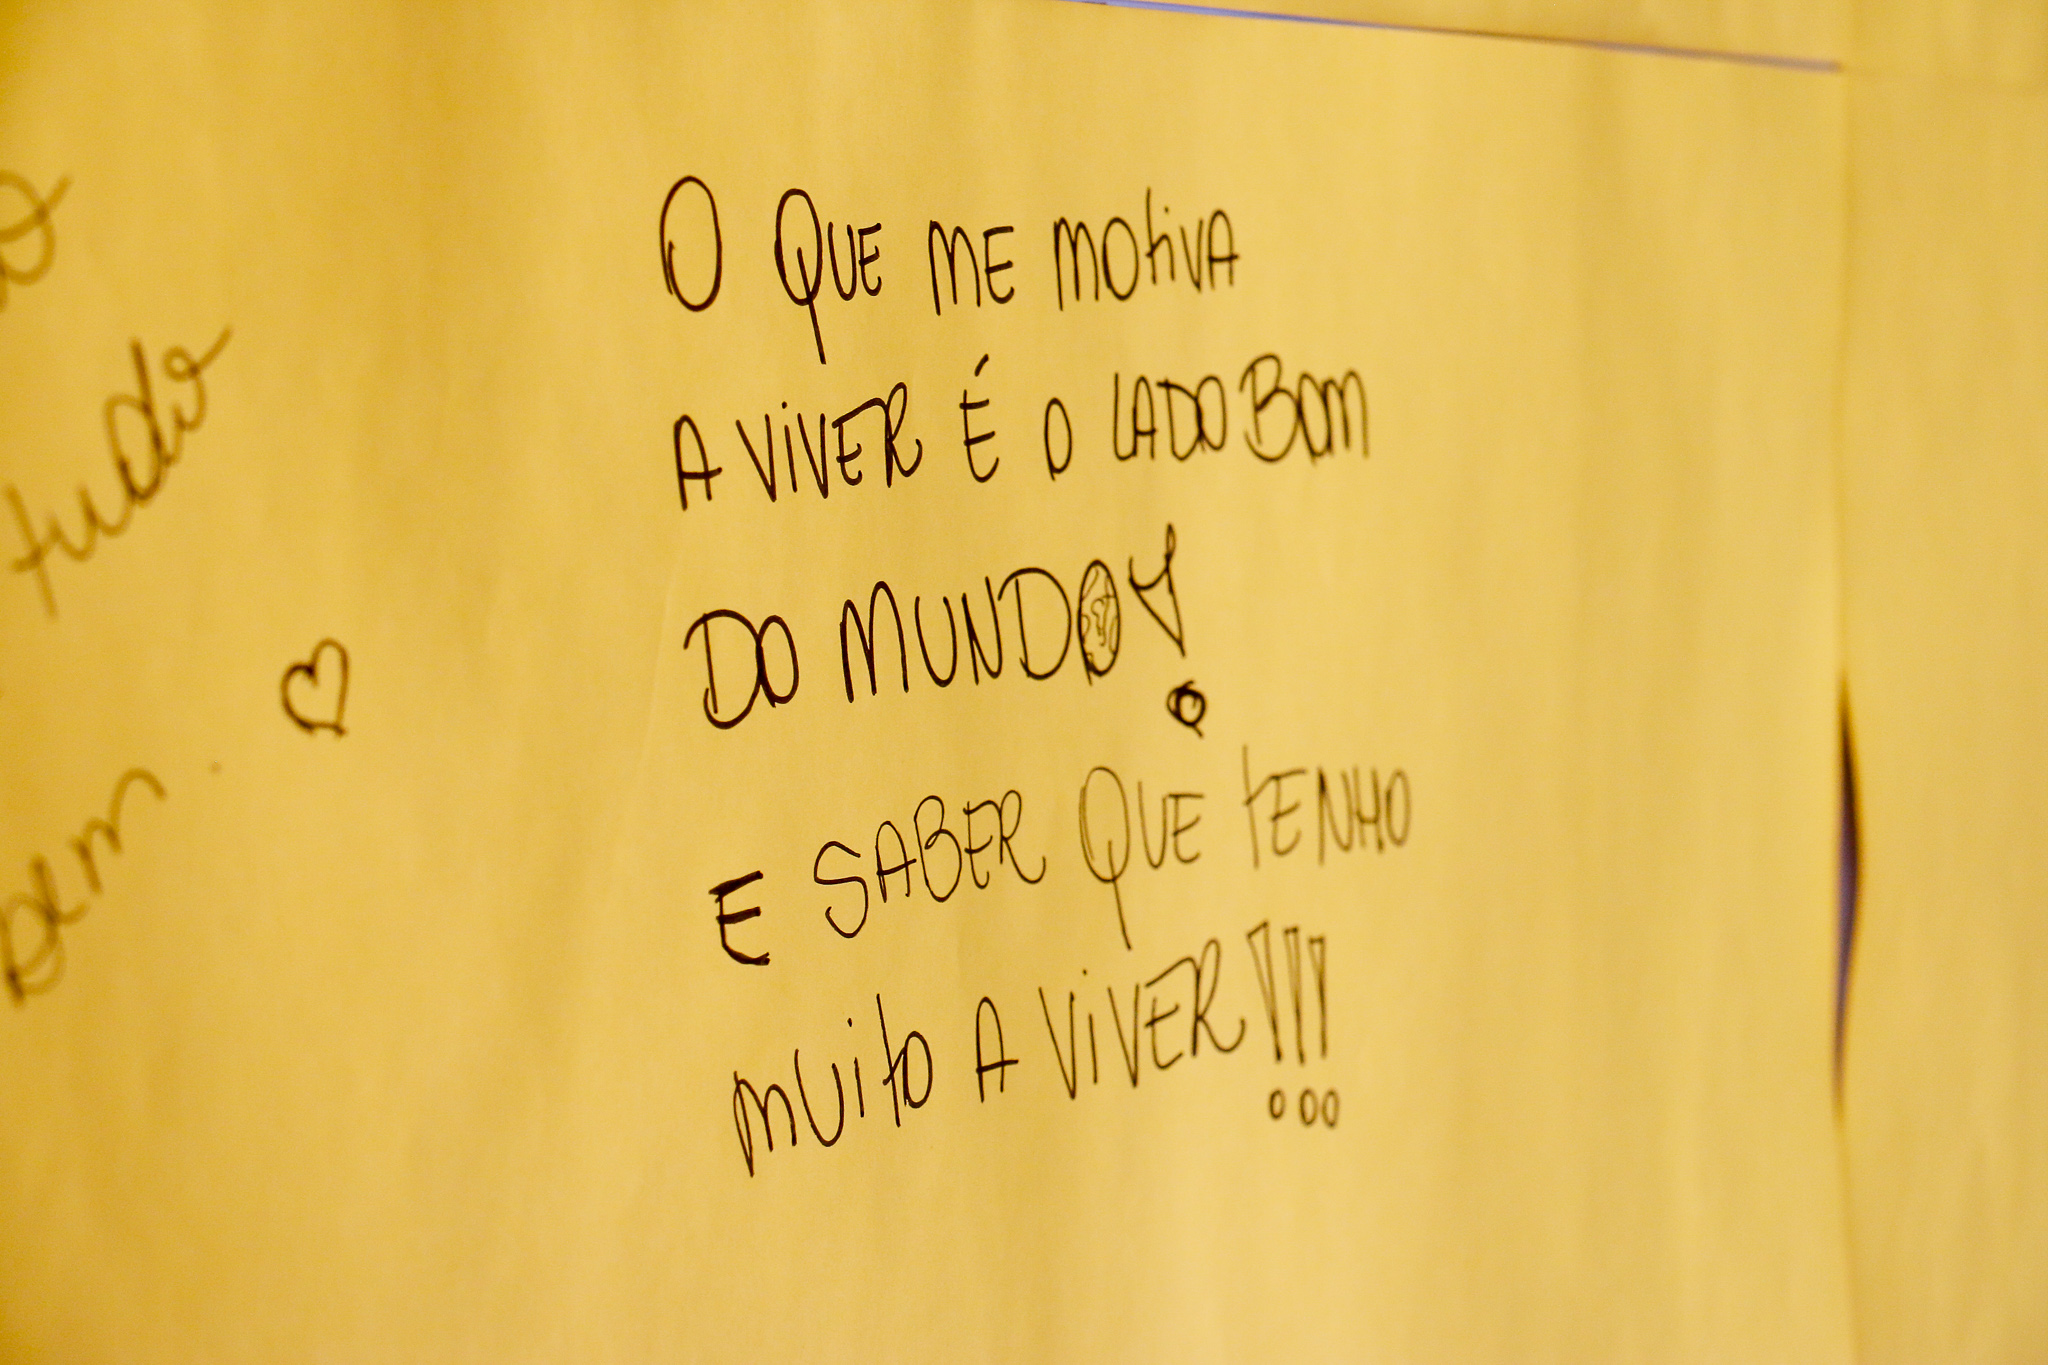 tudo
O QUE ME MOTIVA
A VIVER É O LADO BOM
DO MUNDO!
E SABER QUE TENHO
MUITO A VIVER!!!